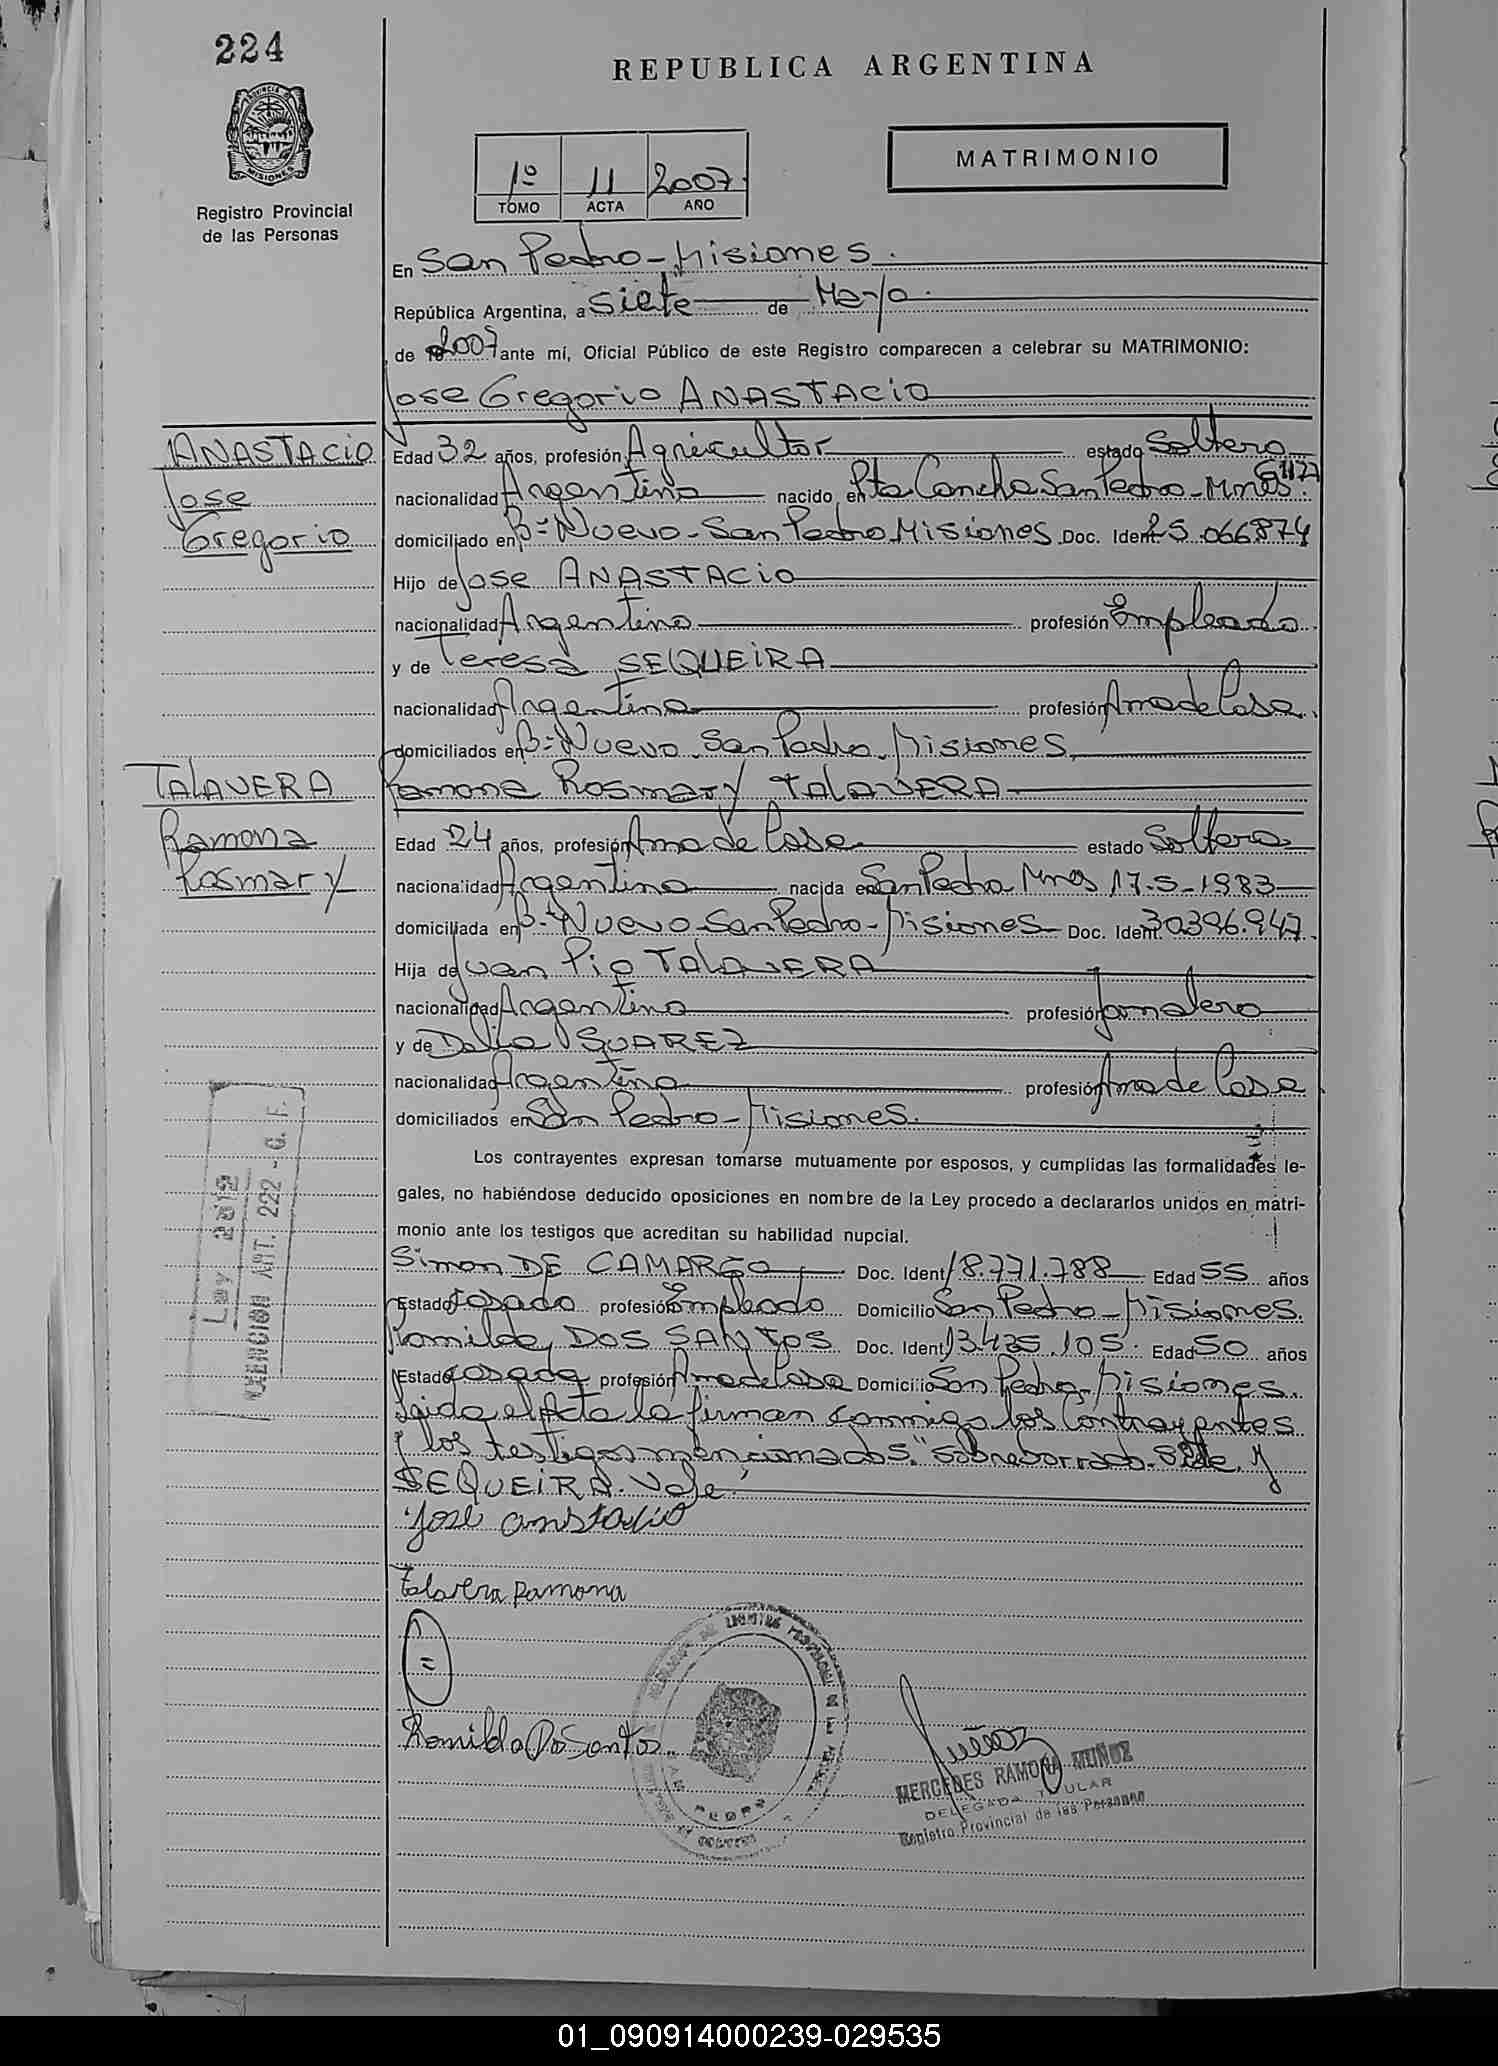 224
REPUBLICA ARGENTINA
MATRIMONIO
1º 11 2007.
TOMO ACTA AÑO
Registro Provincial
de las Personas
En San Pedro - Misiones.
República Argentina, a siete de Mayo.
de 2007 ante mí, Oficial Público de este Registro comparecen a celebrar su MATRIMONIO:
Jose Gregorio ANASTACIO
ANASTACIO
Jose
Gregorio
Edad 32 años, profesión Agricultor estado Soltero
nacionalidad Argentina nacido en Pta Concha San Pedro - Mnes.
domiciliado en Bº Nuevo - San Pedro Misiones Doc. Ident 25.066874
Hijo de Jose ANASTACIO
nacionalidad Argentina profesión Empleado
y de Teresa SEQUEIRA
nacionalidad Argentina profesión Ama de Casa.
domiciliados en Bº Nuevo San Pedro Misiones
TALAVERA
Ramona
Rosmary
Ramona Rosmary TALAVERA
Edad 24 años, profesión Ama de Casa estado Soltera
nacionalidad Argentina nacida en San Pedro Mnes 17-5-1983
domiciliada en Bº Nuevo San Pedro - Misiones Doc. Ident. 30396.947
Hija de Juan Pio TALAVERA
nacionalidad Argentina profesión Jornalero
y de Dalia SUAREZ
nacionalidad Argentina profesión Ama de Casa
domiciliados en San Pedro - Misiones.
Los contrayentes expresan tomarse mutuamente por esposos, y cumplidas las formalidades le-
gales, no habiéndose deducido oposiciones en nombre de la Ley procedo a declararlos unidos en matri-
monio ante los testigos que acreditan su habilidad nupcial.
Simon DE CAMARGO Doc. Ident 18.771.788 Edad 55 años
Estado Casado profesión Empleado Domicilio San Pedro - Misiones.
Romilda DOS SANTOS Doc. Ident 13.435.105. Edad 50 años
Estado Casada profesión Ama de Casa Domicilio San Pedro - Misiones.
Leida el Acta la firman conmigo los Contrayentes
y los testigos mencionados. "Sobreborrado. Siete y
SEQUEIRA. Vale"
Jose anstacio
Talavera Ramona
Romilda Do Santos
Ley 2812
ART. 222 - G. F.
MERCEDES RAMONA MUÑOZ
DELEGADA TITULAR
Registro Provincial de las Personas
01_090914000239-029535